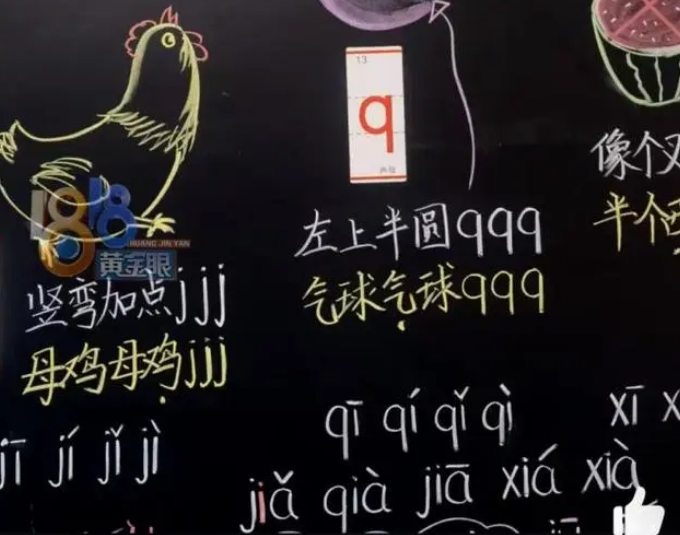 13
q
声母
1818
HUANG JIN YAN
黄金眼
竖弯加点jjj
母鸡母鸡jjj
左上半圆qqq
气球气球qqq
像个
半个
jī jí jǐ jì
qī qí qǐ qì
xī x
jiǎ qià jiā xiá xià